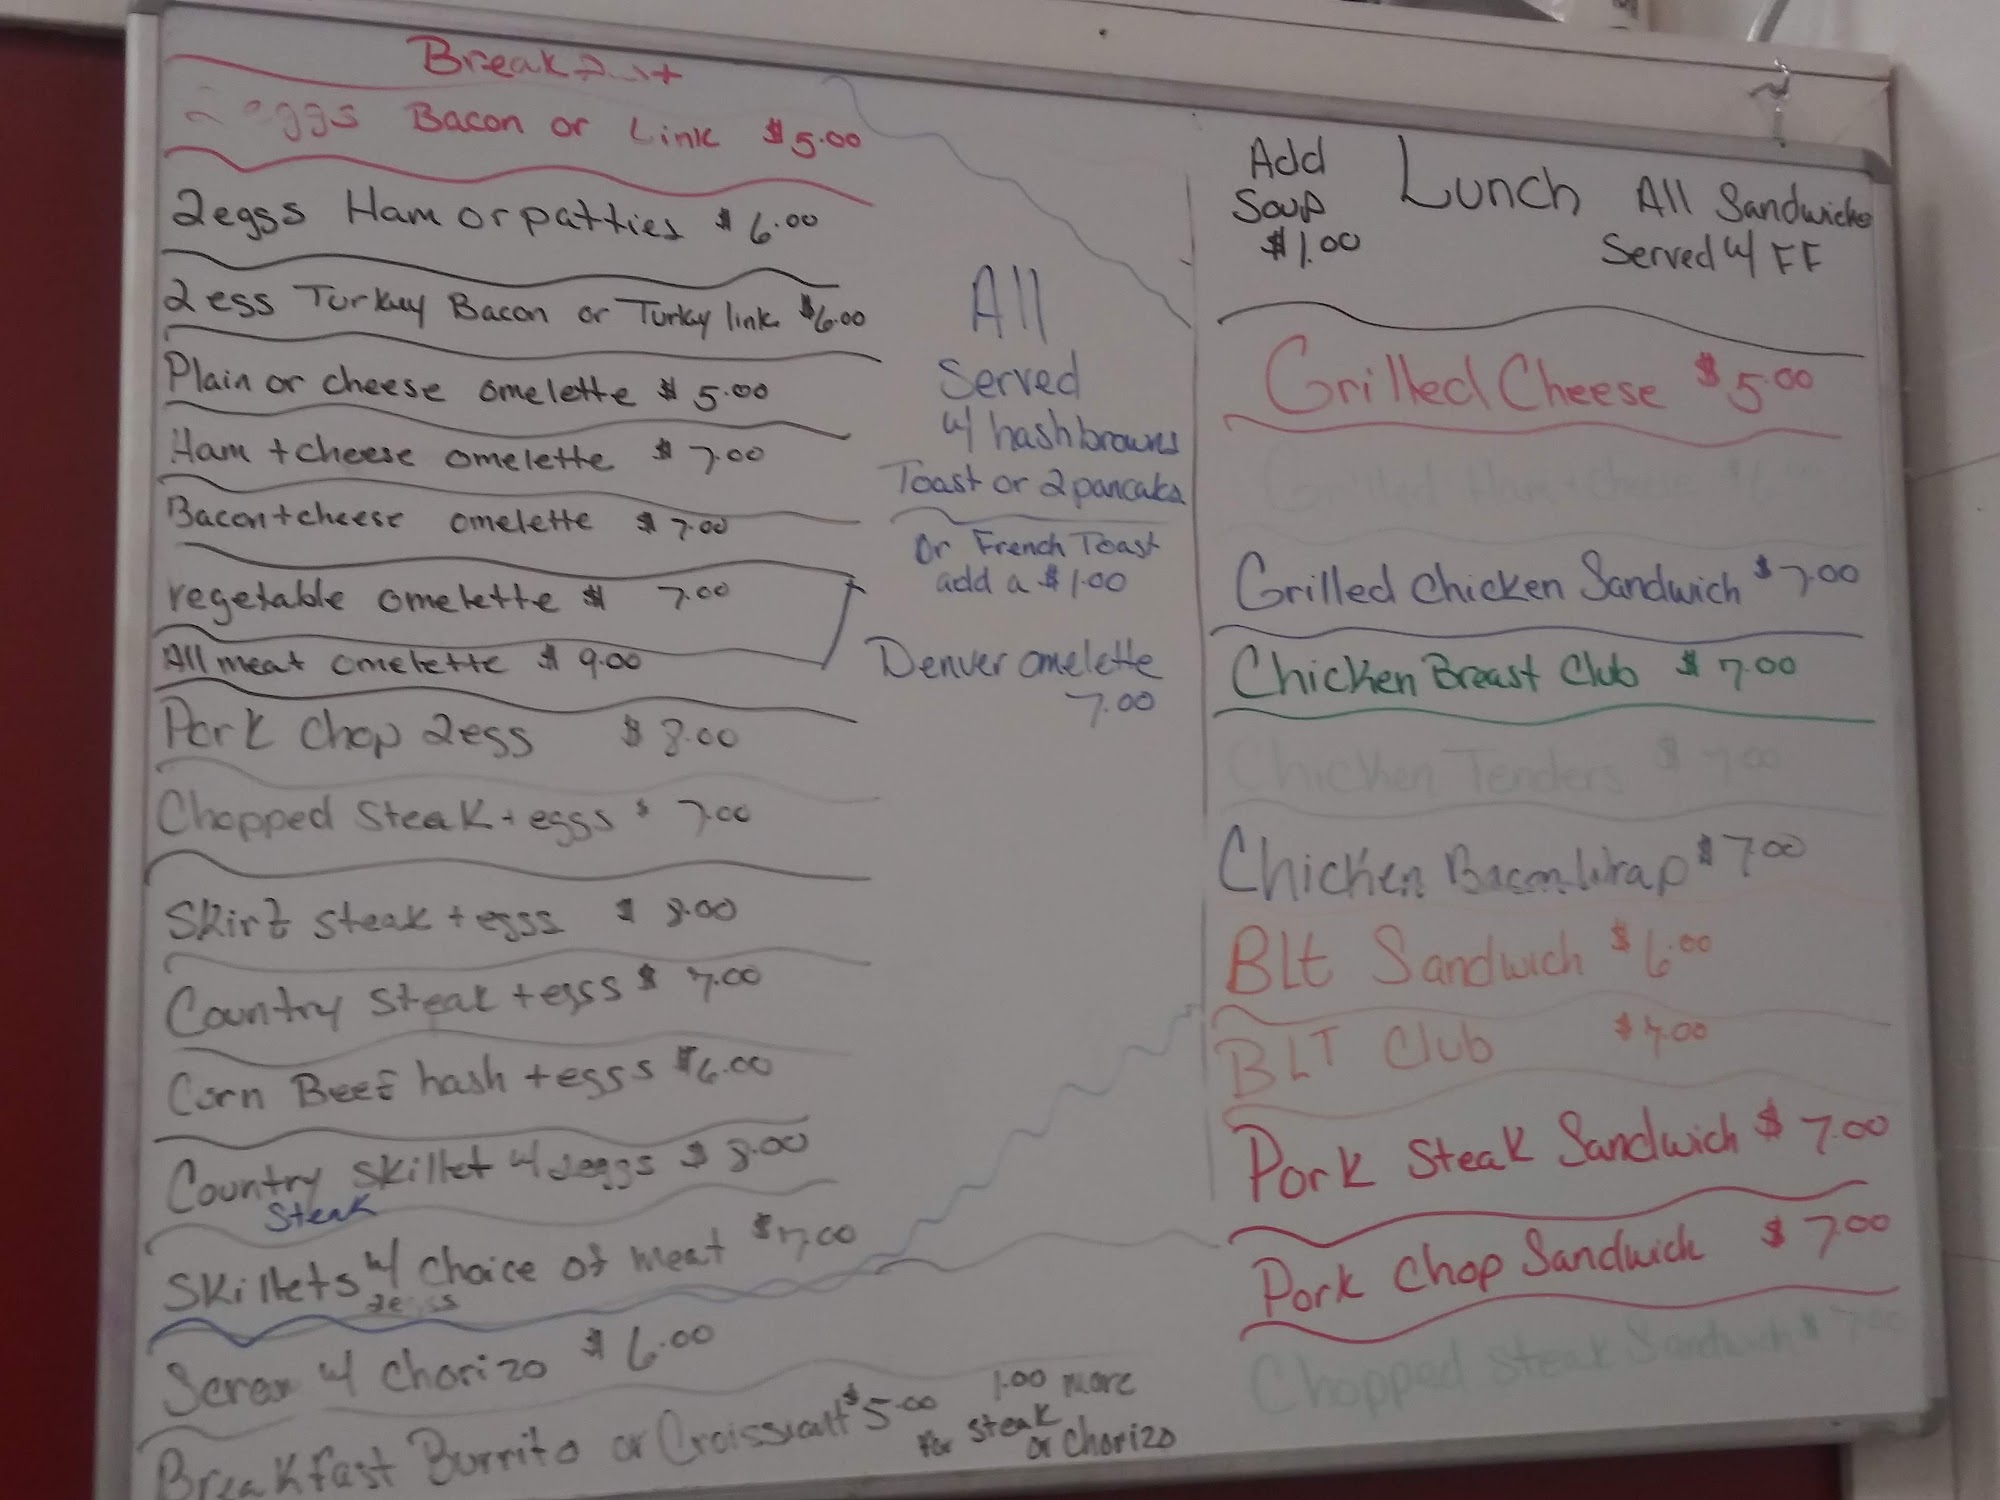 Breakfast
2 eggs Bacon or Link $5.00
2eggs Ham or patties $6.00
2 eggs Turkuy Bacon or Turky link $6.00
Plain or cheese omelette $5.00
Ham + cheese omelette $7.00
Bacon + cheese omelette $7.00
vegetable omelette $7.00
All meat omelette $9.00
Pork Chop 2 eggs $8.00
Chopped Steak + eggs $7.00
Skirt Steak + eggs $8.00
Country Steak + eggs $7.00
Corn Beef hash + eggs $6.00
Country Skillet w/ 2eggs $8.00
Steak
Skillets w/ Choice of meat $7.00
2eggs
w/ Chorizo $6.00
Breakfast Burrito or $5.00
1.00 more
for Steak
or Chorizo
All
Served
w/ hashbrowns
Toast or 2 pancaks
Or French Toast
add a $1.00
Denver omelette
7.00
Add
Soup
$1.00
Lunch
All Sandwichs
Served w/ FF
Grilled Cheese $5.00
Grilled Chicken Sandwich $7.00
Chicken Breast Club $7.00
Chicken Tenders $7.00
Chicken Bacon Wrap $7.00
BLt Sandwich $6.00
BLT Club $7.00
Pork Steak Sandwich $7.00
Pork Chop Sandwich $7.00
Chopped Steak Sandwich $7.00